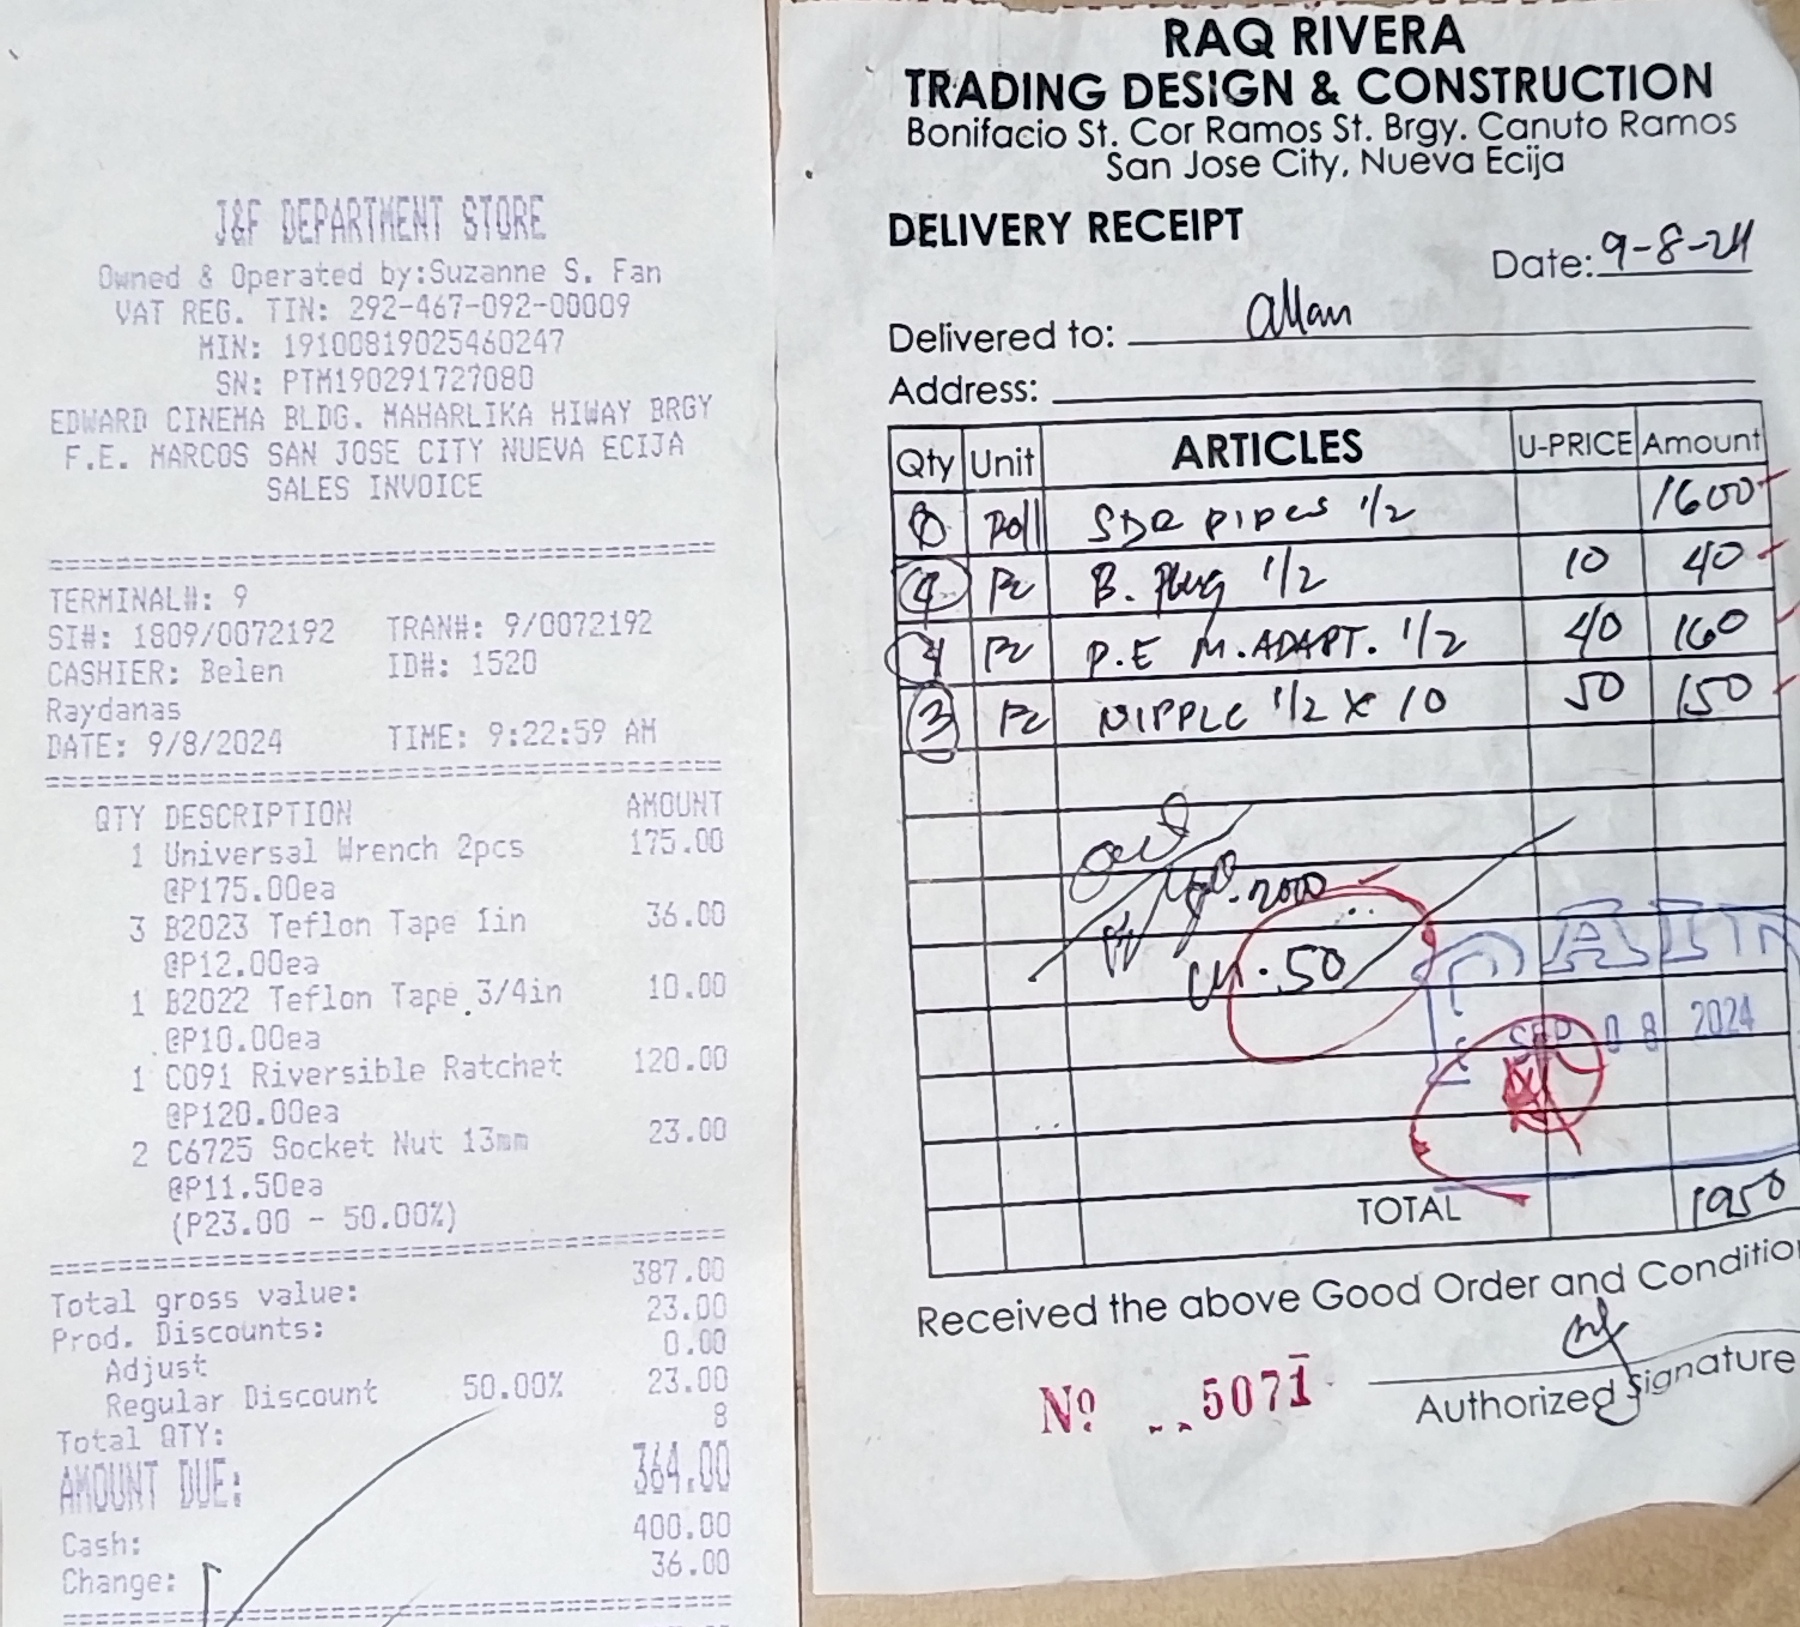 J&F DEPARTMENT STORE
Owned & Operated by:Suzanne S. Fan
VAT REG. TIN: 292-467-092-00009
MIN: 19100819025460247
SN: PTM190291727080
EDWARD CINEMA BLDG. MAHARLIKA HIWAY BRGY
F.E. MARCOS SAN JOSE CITY NUEVA ECIJA
SALES INVOICE
TERMINAL#: 9
SI#: 1809/0072192 TRAN#: 9/0072192
CASHIER: Belen ID#: 1520
Raydanas
DATE: 9/8/2024 TIME: 9:22:59 AM
QTY DESCRIPTION AMOUNT
1 Universal Wrench 2pcs 175.00
@P175.00ea
3 B2023 Teflon Tape 1in 36.00
@P12.00ea
1 B2022 Teflon Tape 3/4in 10.00
@P10.00ea
1 C091 Riversible Ratchet 120.00
@P120.00ea
2 C6725 Socket Nut 13mm 23.00
@P11.50ea
(P23.00 - 50.00%)
Total gross value: 387.00
Prod. Discounts: 23.00
Adjust 0.00
Regular Discount 50.00% 23.00
Total QTY: 8
AMOUNT DUE: 364.00
Cash: 400.00
Change: 36.00
RAQ RIVERA
TRADING DESIGN & CONSTRUCTION
Bonifacio St. Cor Ramos St. Brgy. Canuto Ramos
San Jose City, Nueva Ecija
DELIVERY RECEIPT
Date: 9-8-24
Delivered to: Allan
Address:
Qty Unit ARTICLES U-PRICE Amount
Roll SDR PIPES 1/2 1600
4 Pc B. Plug 1/2 10 40
4 Pc P.E M.ADAPT. 1/2 40 160
3 Pc NIPPLE 1/2 X 10 50 150
2000
50
PAID
SEP 08 2024
TOTAL 1950
Received the above Good Order and Condition
Nº 5071
Authorized Signature